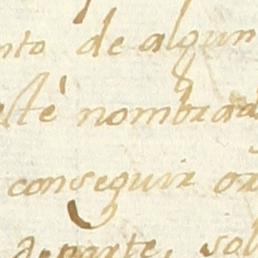 nto de algun
esté nombrad
conseguir or
departe, sol